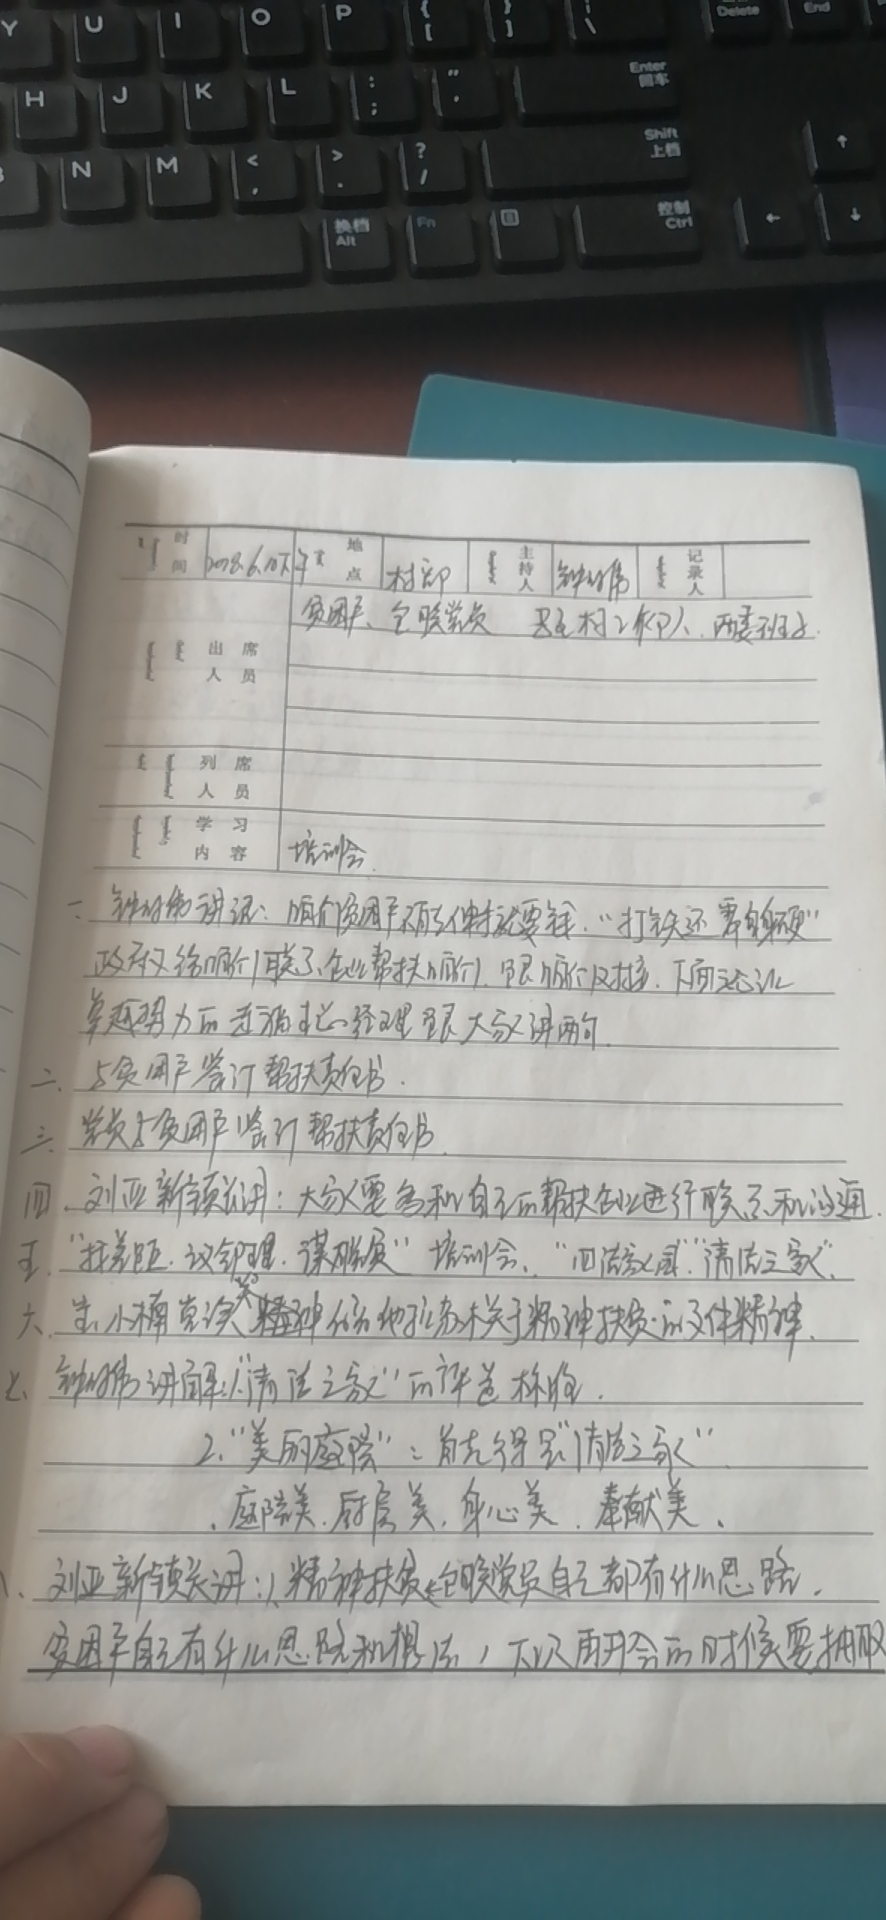 Y U I O P { [ } ] | \ Delete End
H J K L : ; " ' Enter 回车
N M < , > . ? / Shift 上档 ↑
换档 Alt Fn 控制 Ctrl ← ↓
时间 2018.6.10下午 地点 村部 主持人 记录人
出席人员 贫困户、包联党员 村工作队、两委班子
列席人员
学习内容 培训会
一、讲话:咱们贫困户不能伸手就要钱."打铁还需自身硬"
政府给咱们联系企业帮扶咱们,
总经理跟大家讲两句.
二、与贫困户签订帮扶责任书.
三、党员与贫困户签订帮扶责任书.
四、刘亚新镇长讲:大家要多和自己的帮扶企业进行联系和沟通.
五、"找差距.议管理.谋脱贫"培训会、"清洁之家".
六、关于精神扶贫的文件精神.
七、讲解:1."清洁之家"的评选标准.
2."美丽庭院":首先得是"清洁之家"
.庭院美.厨房美.身心美.奉献美.
八、刘亚新镇长讲:1.精神扶贫包联党员自己都有什么思路.
贫困户自己有什么思路和想法,下次再开会的时候要抽取